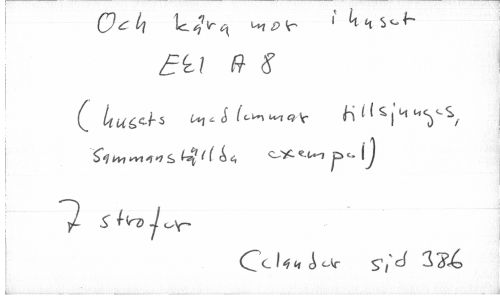 Och kära mor i huset
E&1 A 8
(husets medlemmar tillsjunges,
sammanställda exempel)
7 strofer
Celander sid 386